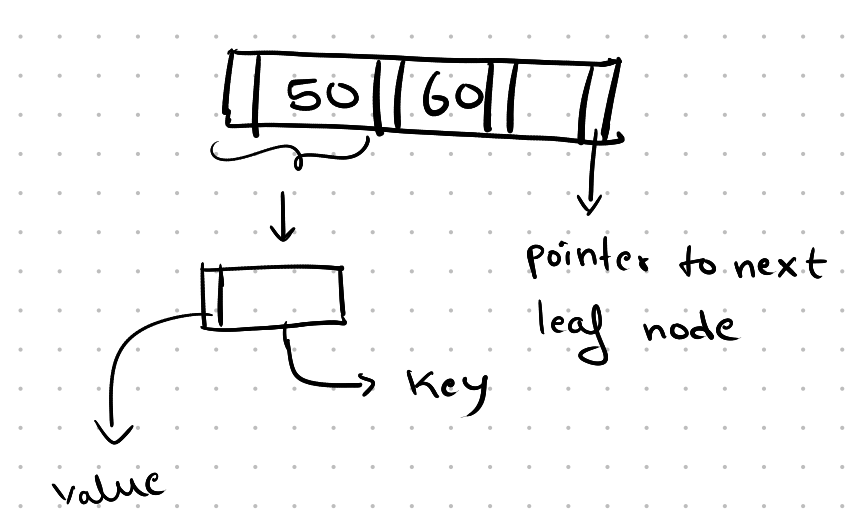 50 60
pointer to next
leaf node
Key
value